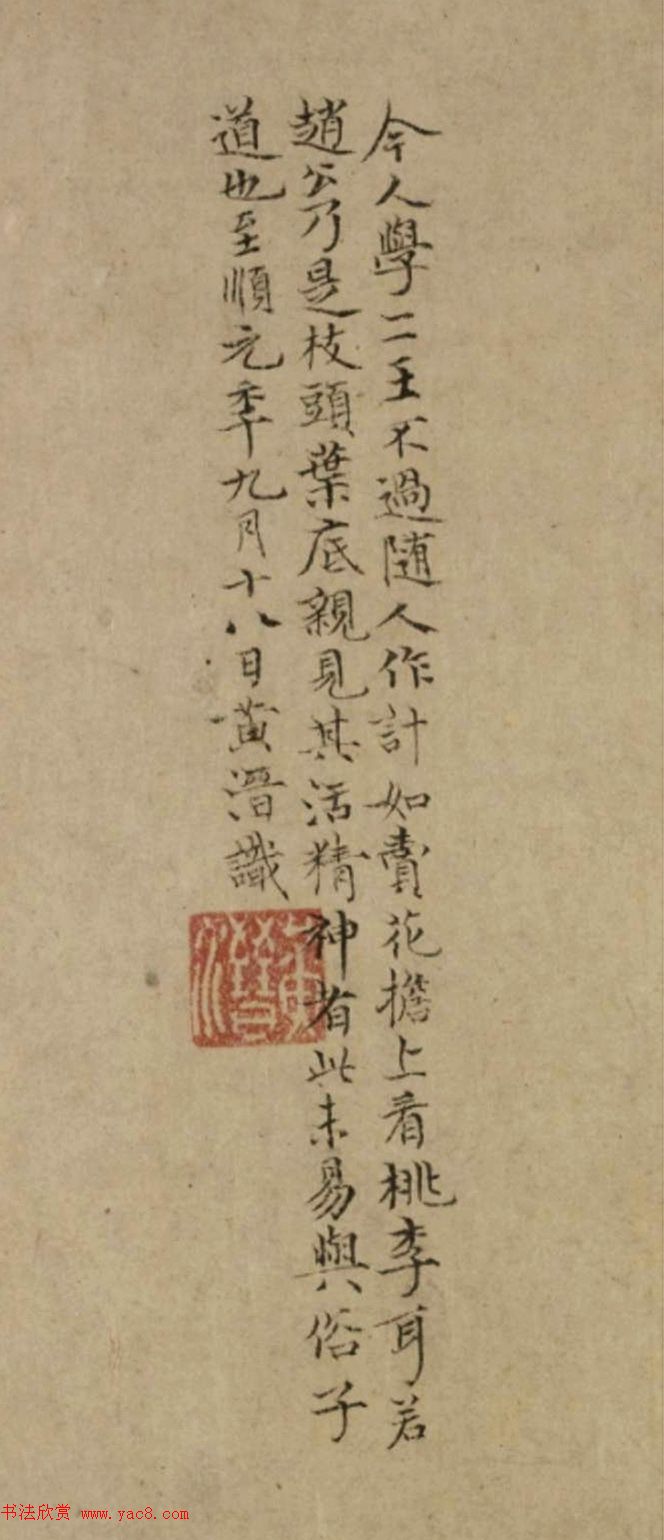 今人學二王不過随人作計如賣花擔上看桃李耳若
趙公乃是枝頭葉底親見其活精神者此未易與俗子
道也至順元季九月十八日黃溍識
书法欣赏 www.yac8.com